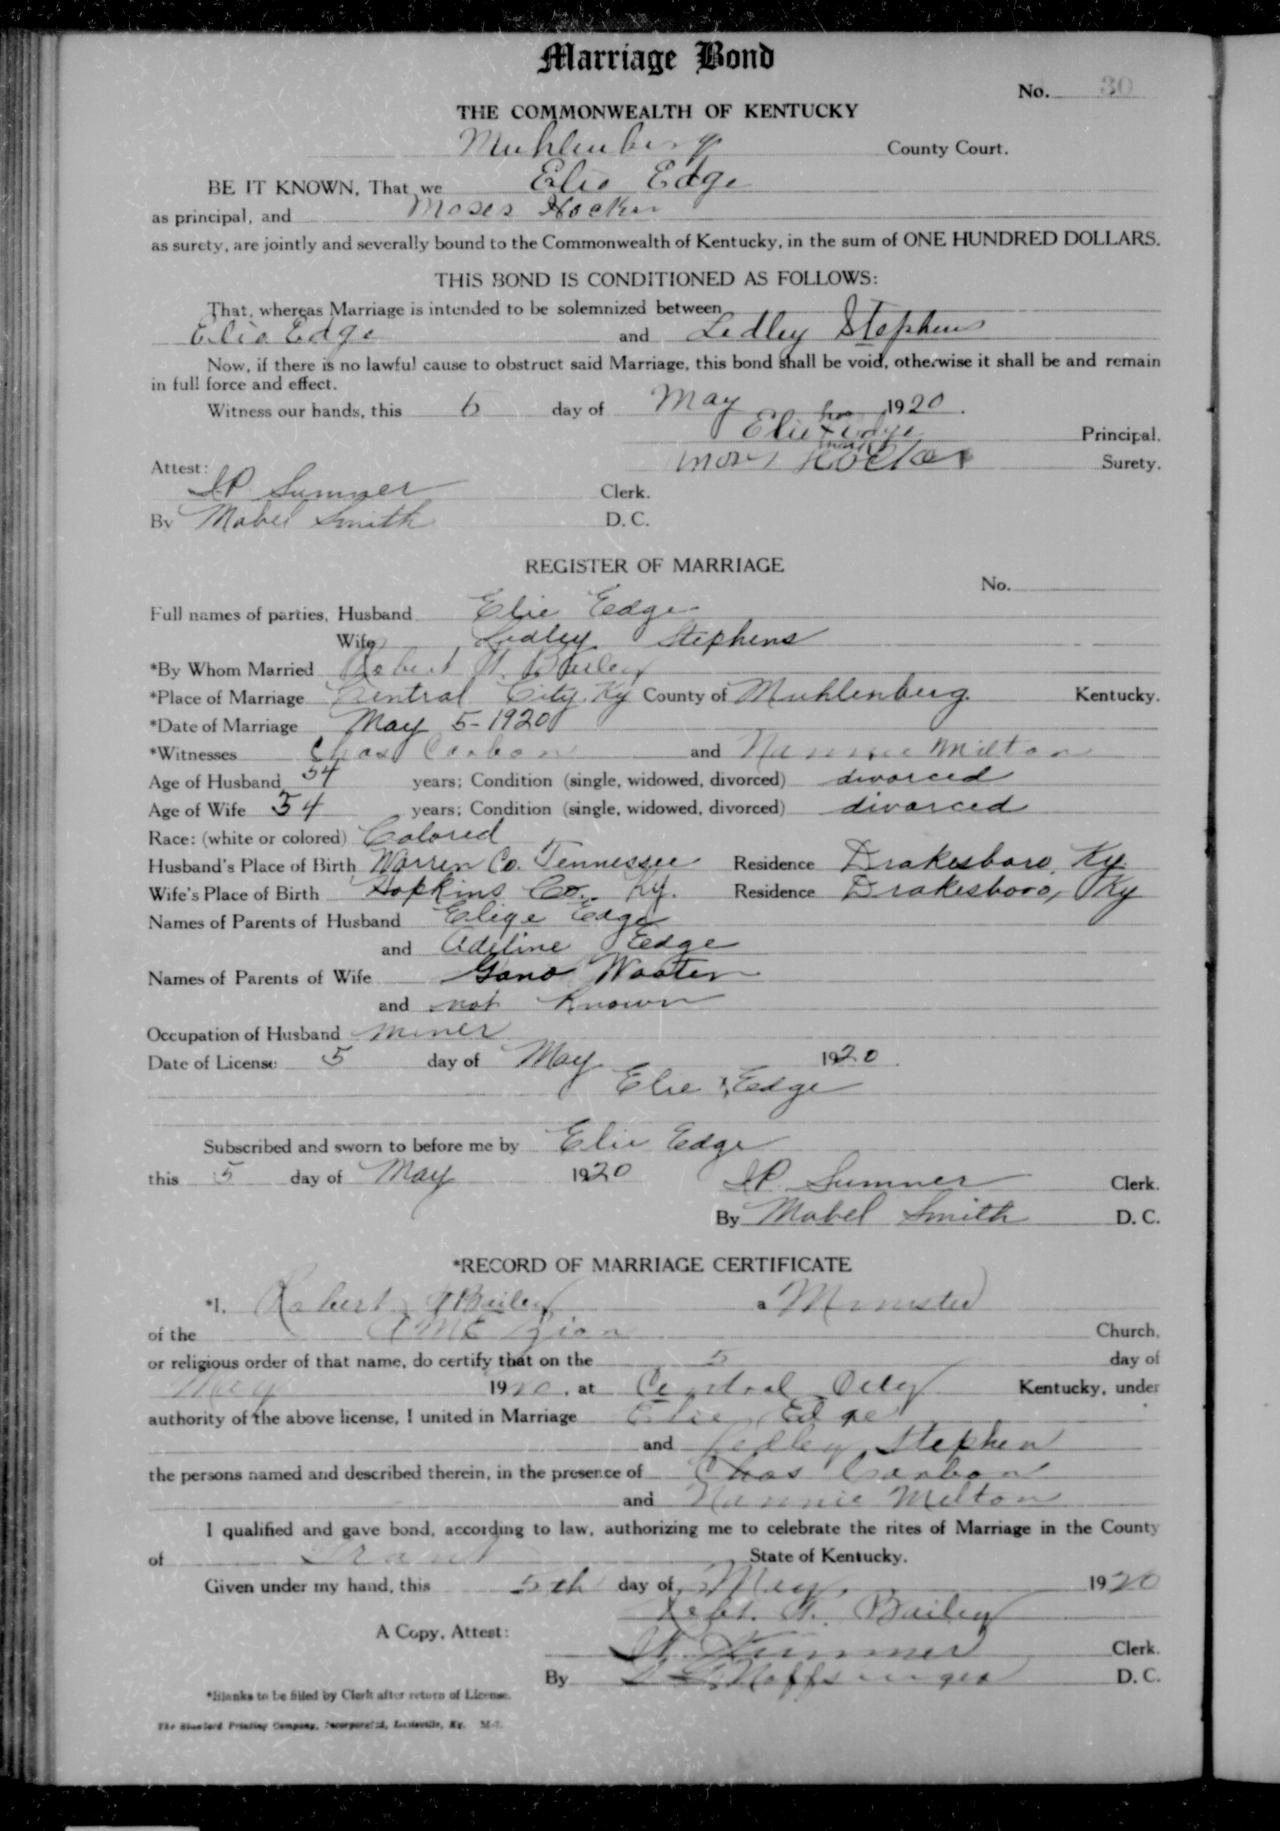 Marriage Bond
No. 30
THE COMMONWEALTH OF KENTUCKY
Muhlenberg County Court.
BE IT KNOWN, That we Elie Edge
as principal, and Moses Hocker
as surety, are jointly and severally bound to the Commonwealth of Kentucky, in the sum of ONE HUNDRED DOLLARS.
THIS BOND IS CONDITIONED AS FOLLOWS:
That, whereas Marriage is intended to be solemnized between
Elie Edge and Ledley Stephens
Now, if there is no lawful cause to obstruct said Marriage, this bond shall be void, otherwise it shall be and remain
in full force and effect.
Witness our hands, this 5 day of May 1920.
Elie his x mark Edge Principal.
Moses Hocker Surety.
Attest:
Clerk. Sumner
By Mabel Smith D. C.
REGISTER OF MARRIAGE
No.
Full names of parties, Husband Elie Edge
Wife Ledley Stephens
*By Whom Married Robert Bailey
*Place of Marriage Central City, Ky County of Muhlenberg Kentucky.
*Date of Marriage May 5-1920
*Witnesses Chas Carbon and Nannie Milton
Age of Husband 54 years; Condition (single, widowed, divorced) divorced
Age of Wife 54 years; Condition (single, widowed, divorced) divorced
Race: (white or colored) Colored
Husband's Place of Birth Warren Co. Tennessee Residence Drakesboro, Ky.
Wife's Place of Birth Hopkins Co. Ky. Residence Drakesboro, Ky
Names of Parents of Husband Elige Edge
and Adeline Edge
Names of Parents of Wife Gano Wooten
and not known
Occupation of Husband miner
Date of License 5 day of May 1920.
Elie x Edge
Subscribed and sworn to before me by Elie Edge
this 5 day of May 1920 Sumner Clerk.
By Mabel Smith D. C.
*RECORD OF MARRIAGE CERTIFICATE
*I, Robert Bailey a Minister
of the AME Zion Church,
or religious order of that name, do certify that on the 5 day of
May 1920, at Central City Kentucky, under
authority of the above license, I united in Marriage Elie Edge
and Ledley Stephen
the persons named and described therein, in the presence of Chas Carbon
and Nannie Milton
I qualified and gave bond, according to law, authorizing me to celebrate the rites of Marriage in the County
of Grant State of Kentucky.
Given under my hand, this 5th day of May, 1920
Robt. Bailey
A Copy, Attest: Sumner Clerk.
By Noffsinger D. C.
*Blanks to be filled by Clerk after return of License.
The Standard Printing Company, Incorporated, Louisville, Ky. M-7.